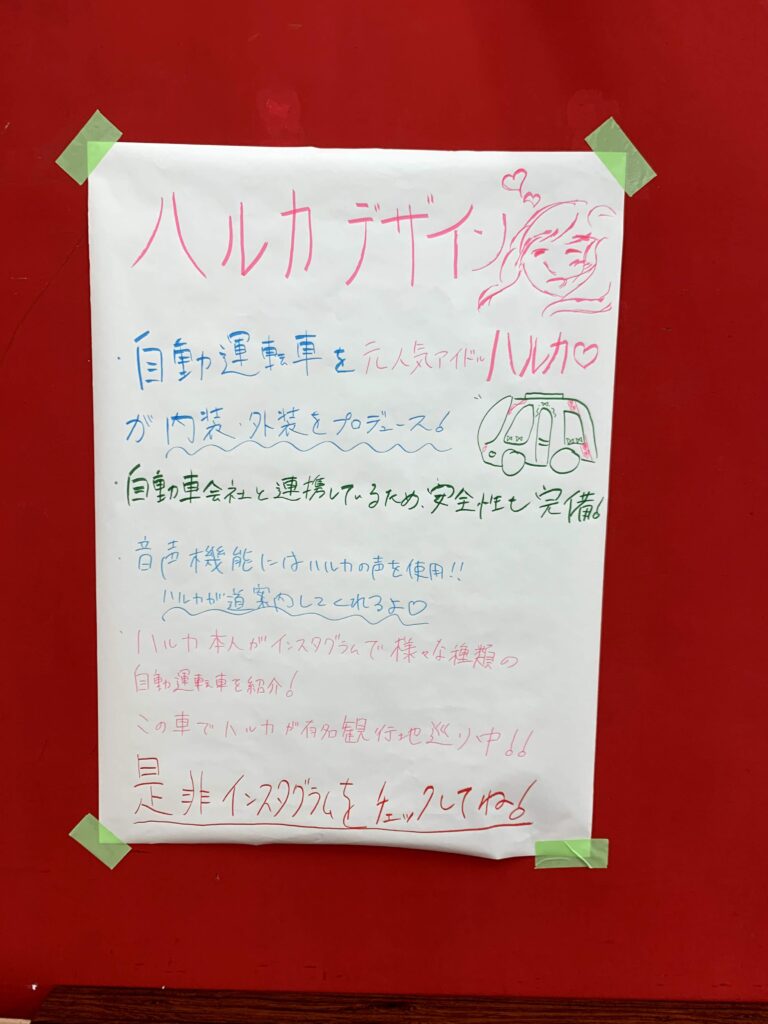 ハルカデザイン
・自動運転車を元人気アイドルハルカ♡
が内装・外装をプロデュース!
・自動車会社と連携しているため、安全性も完備!
・音声機能にはハルカの声を使用!!
ハルカが道案内してくれるよ♡
ハルカ本人がインスタグラムで様々な種類の
自動運転車を紹介!
この車でハルカが有名観行地巡り中!!
是非インスタグラムをチェックしてね!